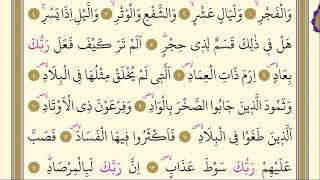 وَالْفَجْرِ ۙ ١ وَلَيَالٍ عَشْرٍ ۙ ٢ وَّالشَّفْعِ وَالْوَتْرِ ۙ ٣ وَالَّيْلِ اِذَا يَسْرِ ۚ ٤
هَلْ فِيْ ذٰلِكَ قَسَمٌ لِّذِيْ حِجْرٍ ؕ ٥ اَلَمْ تَرَ كَيْفَ فَعَلَ رَبُّكَ
بِعَادٍ ۙ ٦ اِرَمَ ذَاتِ الْعِمَادِ ۙ ٧ الَّتِيْ لَمْ يُخْلَقْ مِثْلُهَا فِي الْبِلَادِ ۙ ٨
وَثَمُوْدَ الَّذِيْنَ جَابُوا الصَّخْرَ بِالْوَادِ ۙ ٩ وَفِرْعَوْنَ ذِي الْاَوْتَادِ ۙ ١٠
الَّذِيْنَ طَغَوْا فِي الْبِلَادِ ۙ ١١ فَاَكْثَرُوْا فِيْهَا الْفَسَادَ ۙ ١٢ فَصَبَّ
عَلَيْهِمْ رَبُّكَ سَوْطَ عَذَابٍ ۚ ١٣ اِنَّ رَبَّكَ لَبِالْمِرْصَادِ ؕ ١٤